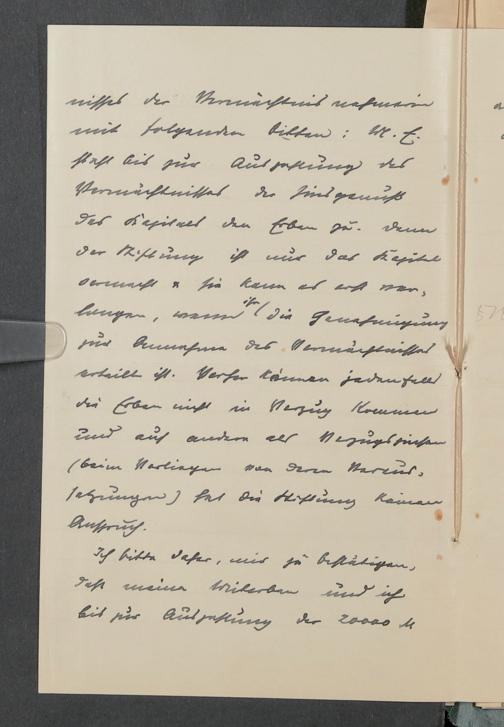 nisses der Vermächtnisnehmerin
mit folgenden Bitten: M. E.
steht bis zur Auszahlung des
Vermächtnisses der Zinsgenuß
des Kapitals den Erben zu. Denn
der Stiftung ist nur das Kapital
vermacht & sie kann es erst ver-
langen, wenn ihr die Genehmigung
zur Annahme des Vermächtnisses
erteilt ist. Vorher können jedenfalls
die Erben nicht in Verzug kommen
und auf andere als Verzugszinsen
(beim Vorliegen von deren Voraus-
setzungen) hat die Stiftung keinen
Anspruch.
Ich bitte daher, mir zu bestätigen,
daß meine Miterben und ich
bis zur Auszahlung der 20000 M